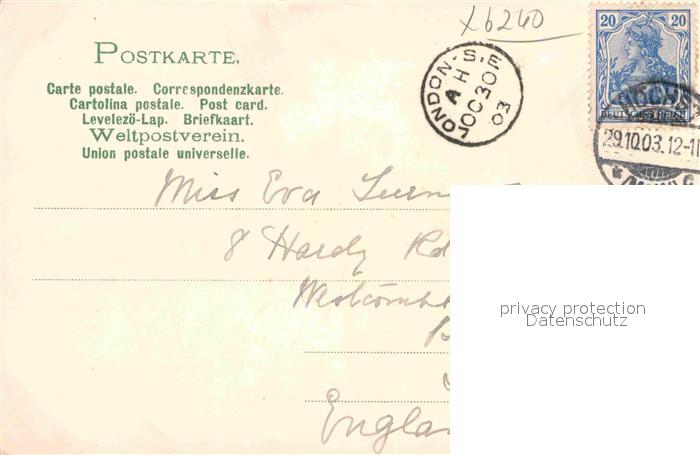 x6240
20 20
POSTKARTE.
LONDON·S.E
A H
OC 30
03
DEUTSCHES REICH
29.10.03.12-1
Carte postale. Correspondenzkarte.
Cartolina postale. Post card.
Levelező-Lap. Briefkaart.
Weltpostverein.
Union postale universelle.
Miss Eva
8 Hardy Rd
Westcombe
privacy protection
Datenschutz
Engla